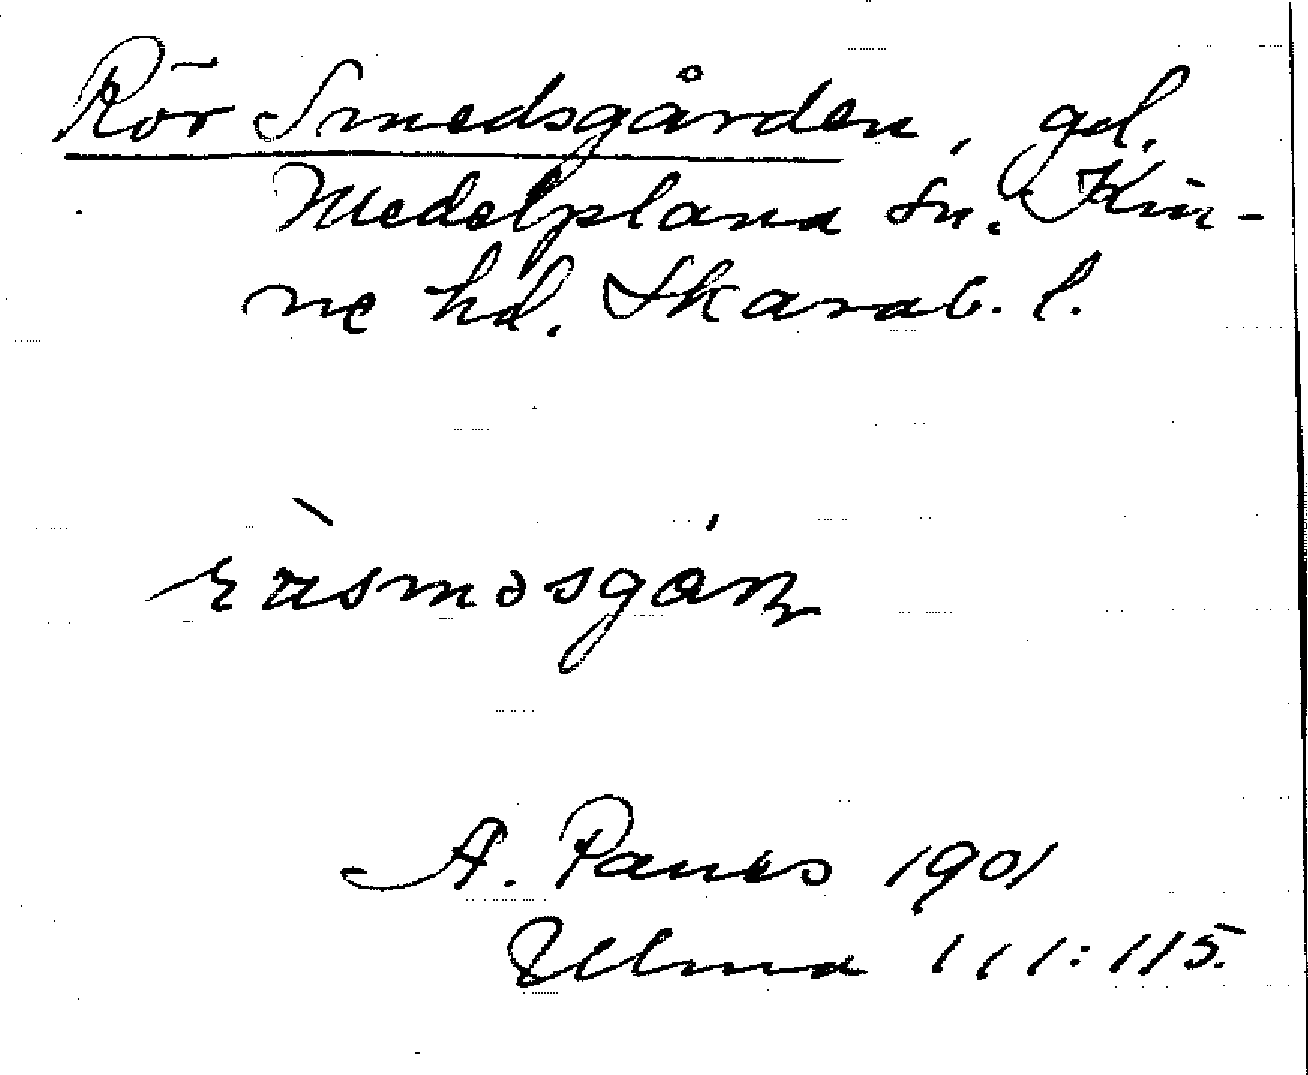 Rör Smedsgården, gd.
Medelplana sn. Kin-
ne hd. Skarab. l.
A. Ranes 1901
Ulma 111:115.